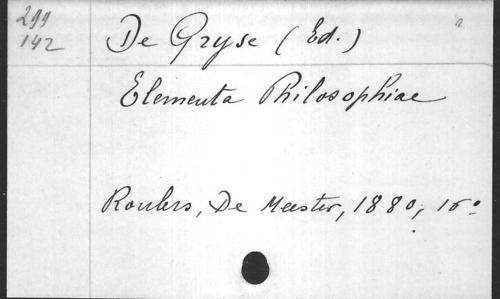 299
142
De Gryse (Ed.)
Elementa Philosophiae
Roulers, De Meester, 1880, 16°